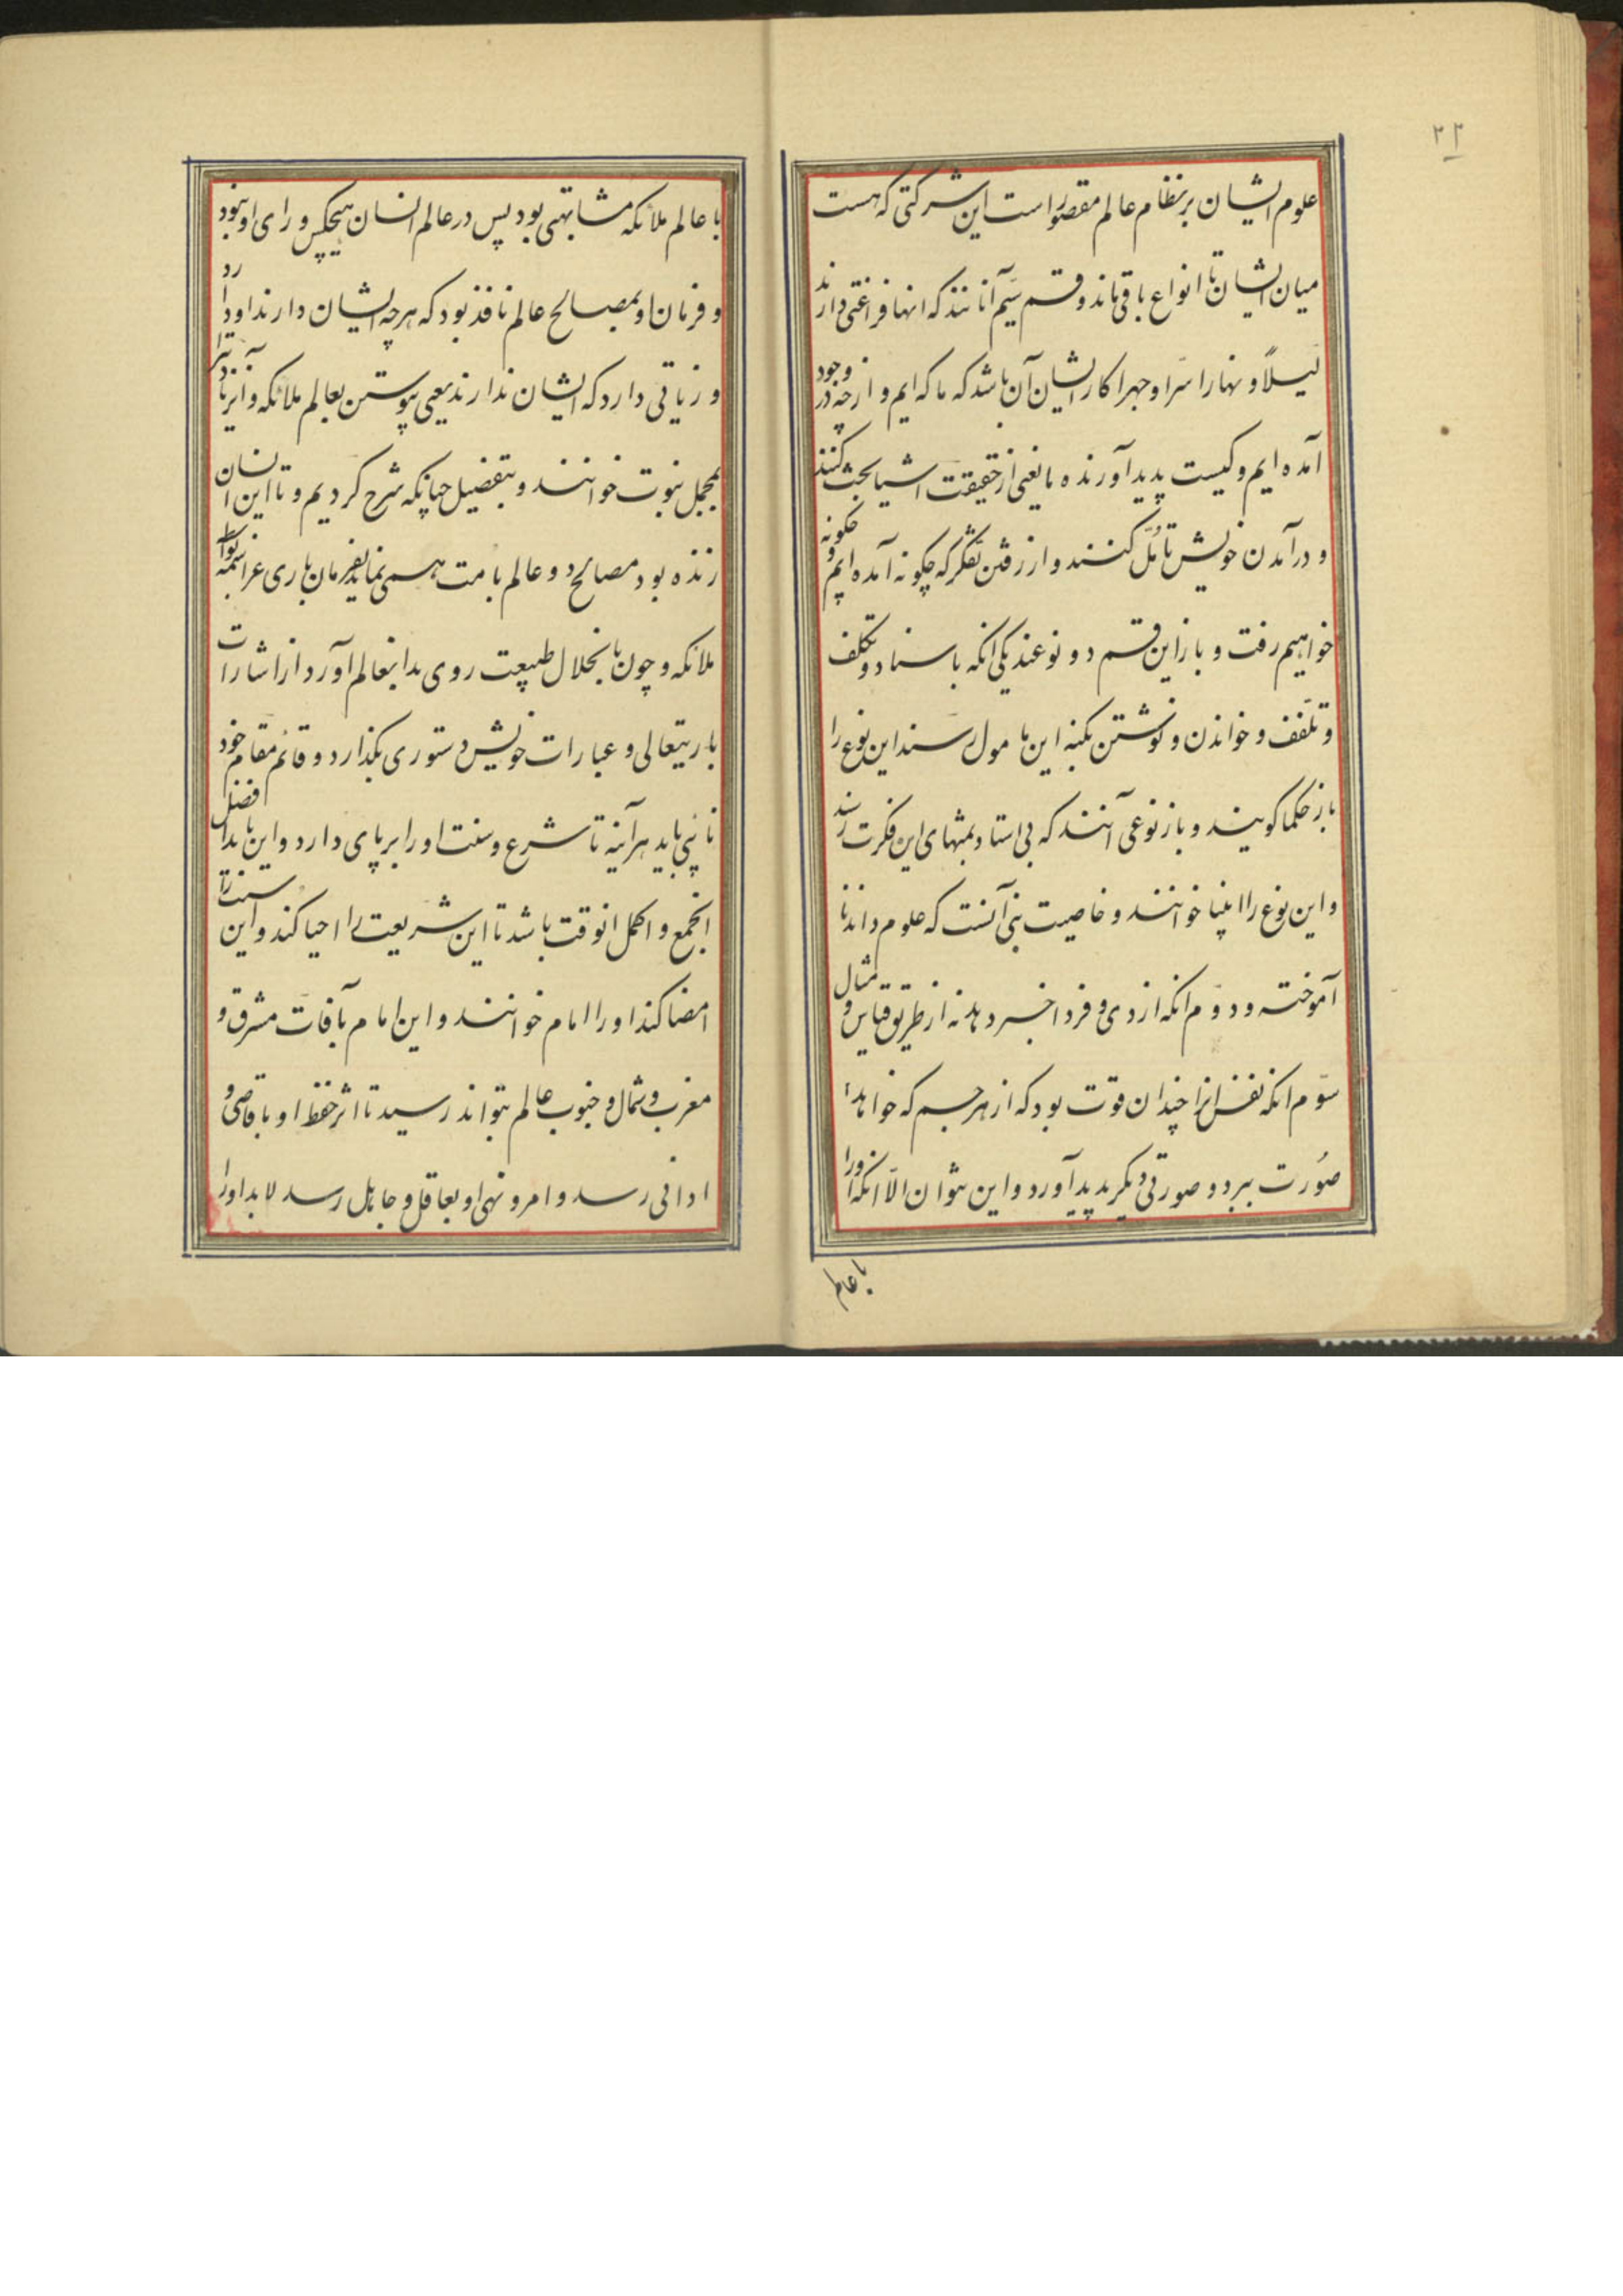 ۲۲
علوم ایشان بر نظام عالم مقصور است این شرکتی که هست
میان ایشان تا انواع باقی ماند و قسم سیم آنانند که اینها فراغتی دارند
لیلاً و نهارا سرّا و جهرا کار ایشان آن باشد که ما که ایم و از چه در وجود
آمده ایم و کیست پدید آورنده ما یعنی از حقیقت اشیا بحث کنند
و در آمدن خویش تأمّل کنند و از رفتن تفکّر که چگونه آمده ایم و چگونه
خواهیم رفت و باز این قسم دو نوعند یکی انکه باستاد و تکلف
و تلقف و خواندن و نوشتن بکنه این مامول رسند این نوع را
باز حکما گویند و باز نوعی آنند که بی استاد بمنتهای این فکرت رسند
و این نوع را انبیا خوانند و خاصیت نبی آنست که علوم داند نا
آموخته و دوّم انکه از دی و فردا خبر دهد نه از طریق قیاس و مثال
سوّم انکه نفس انرا چندان قوت بود که از هر جسم که خواهد
صُورت ببرد و صورتی دیکر پدید آورد و این نتوان الّا انکه او را
با عالم
با عالم ملائکه مشابهتی بود پس در عالم انسان هیچکس ورای او نبود
و فرمان او بمصالح عالم نافذ بود که هرچه ایشان دارند او دارد
و زیادتی دارد که ایشان ندارند یعنی پیوستن بعالم ملائکه و آنزیادتیرا
بمجمل نبوت خوانند و بتفضیل چنانکه شرح کردیم و تا این انسان
زنده بود مصالح دو عالم بامت همی نماید بفرمان باری عزاسمه بواسطه
ملائکه و چون بانحلال طبیعت روی بدانعالم آورد از اشارات
باریتعالی و عبارات خویش دستوری بگذارد و قائم مقام خود
نائبی باید هر آینه تا شرع و سنت او را بر پای دارد و این باید افضل
انجمع و اکمل انوقت باشد تا این شریعت را احیا کند و این سنترا
امضا کند او را امام خوانند و این امام بآفات مشرق و
مغرب و شمال و جنوب عالم نتواند رسید تا اثر حفظ او باقاصی و
ادانی رسد و امر و نهی او بعاقل و جاهل رسد لابد او را